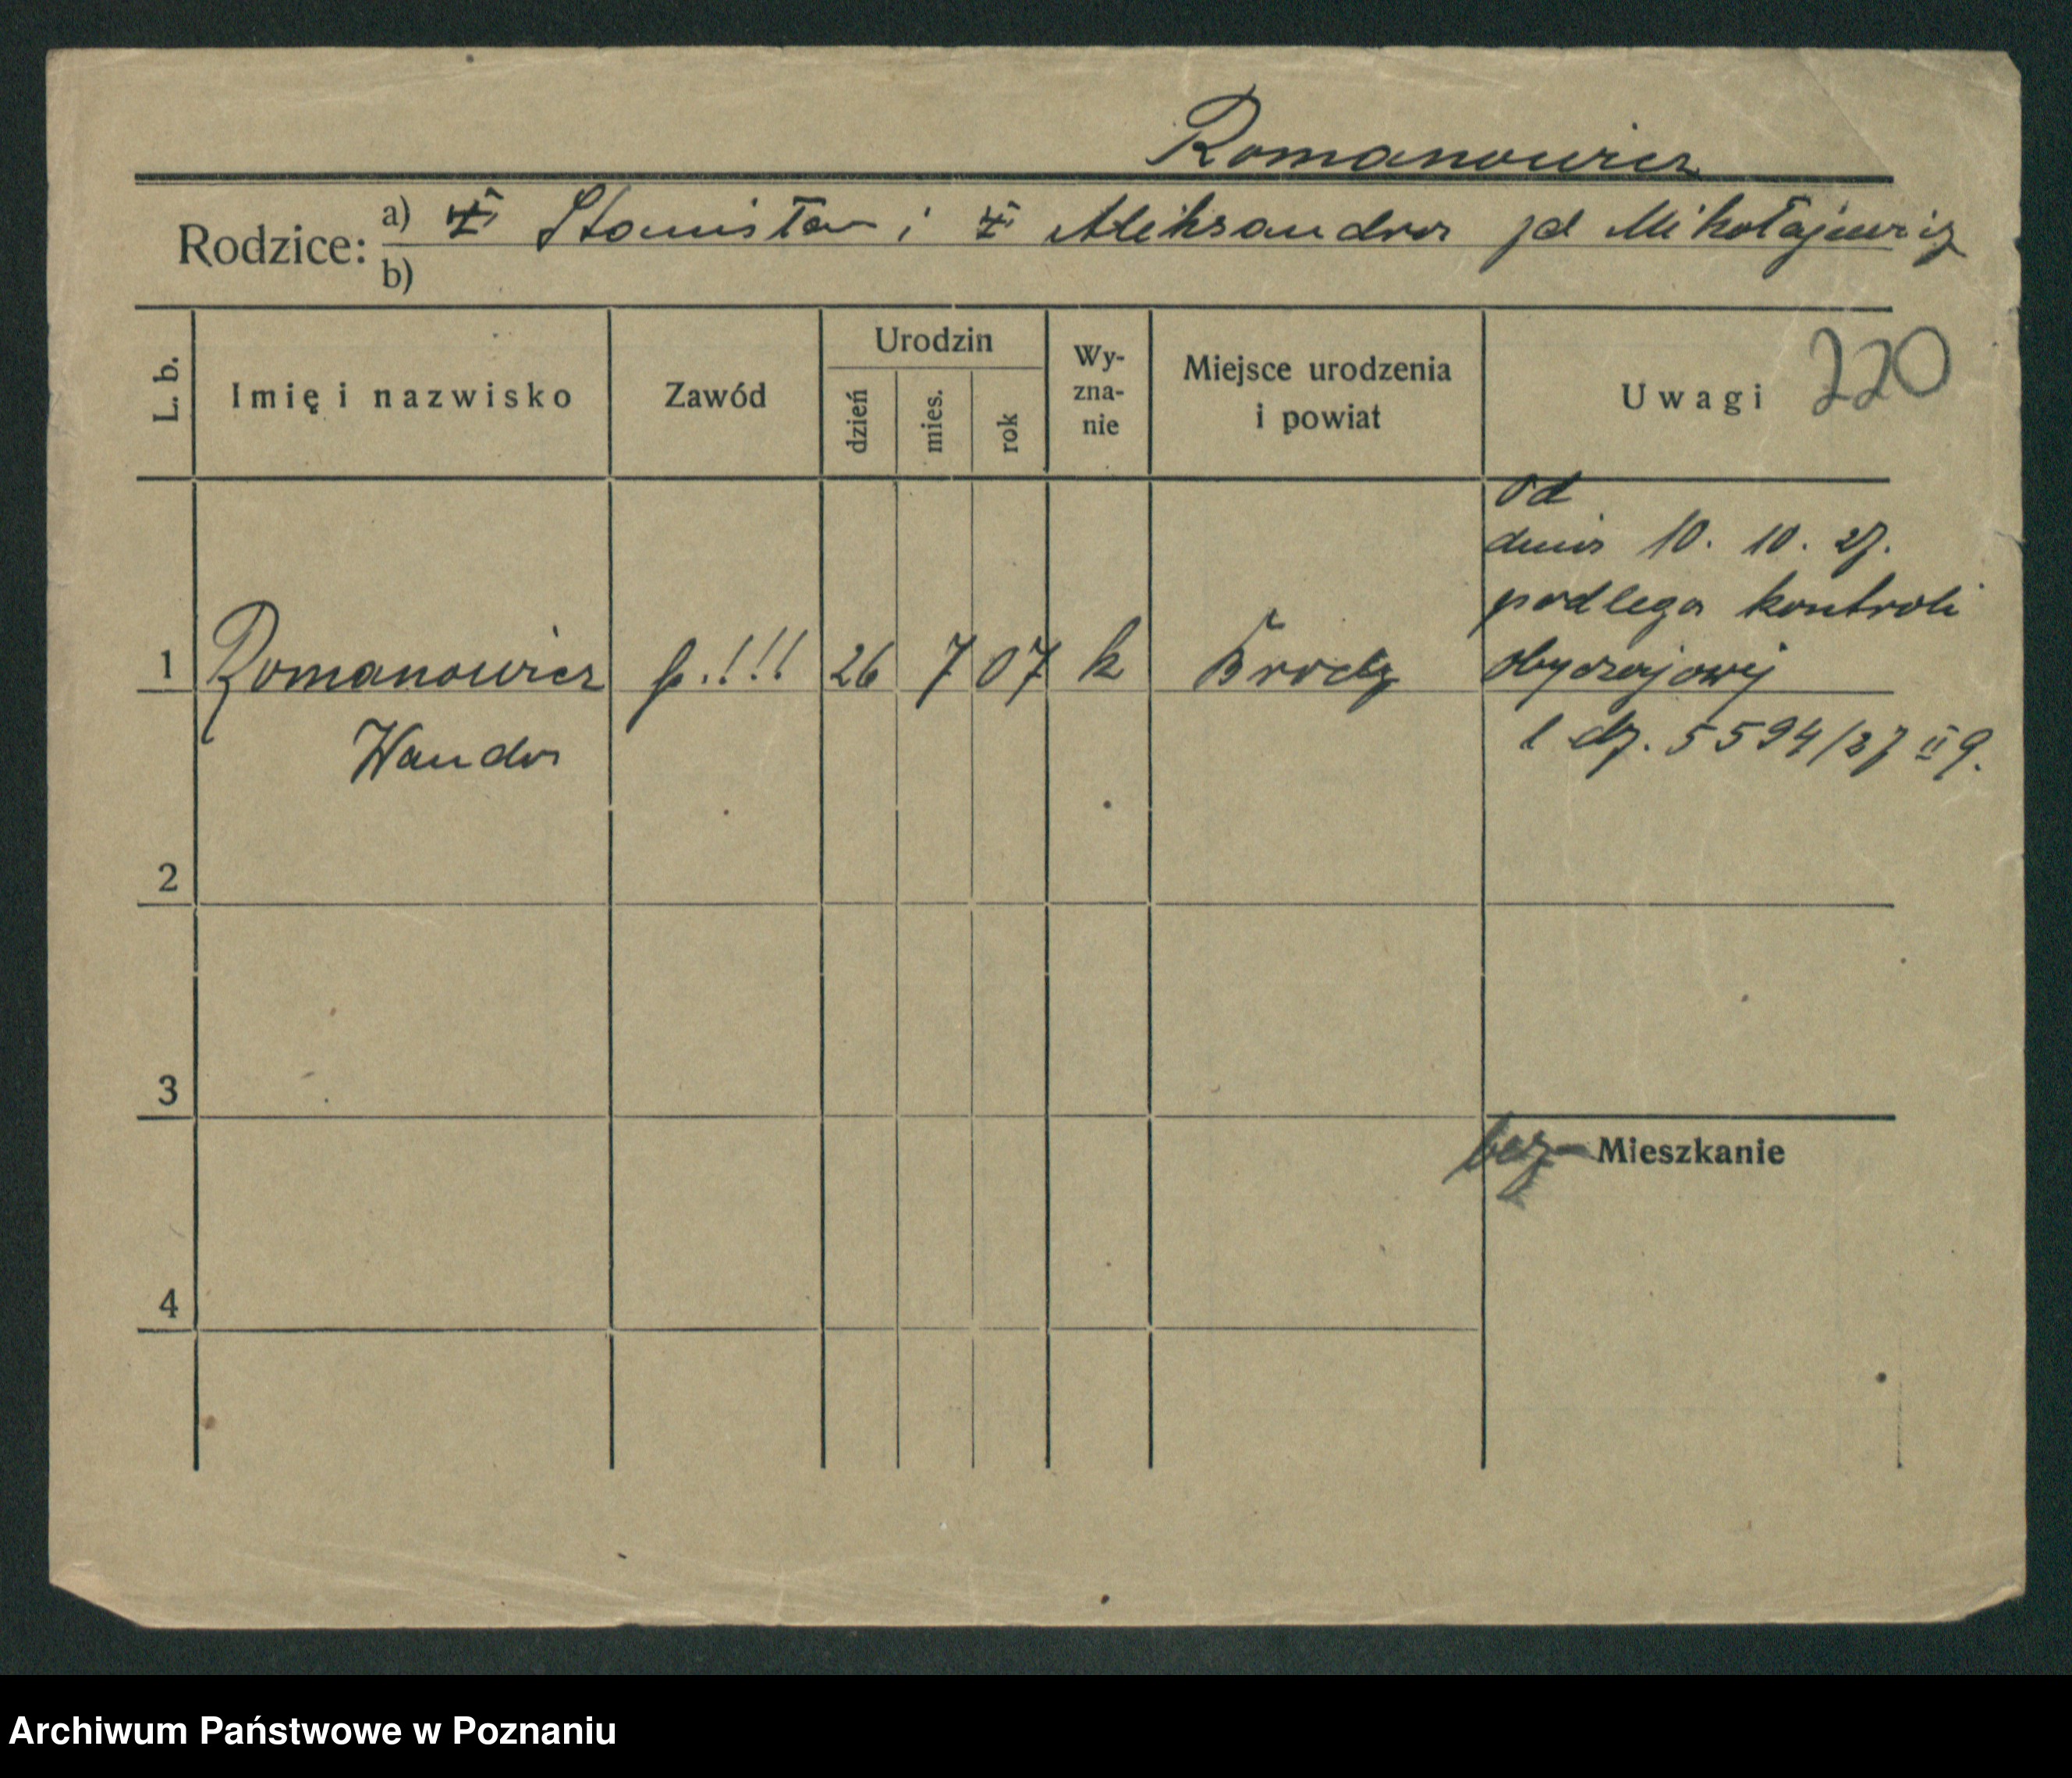 Romanowicz
Rodzice: a) Stanisław i Aleksandra jd Mikołajewicz
b)
L. b. Imię i nazwisko Zawód Urodzin dzień mies. rok Wy-zna-nie Miejsce urodzenia i powiat Uwagi 220
od
dnia 10. 10. 27.
podlega kontroli
1 Romanowicz p.!!! 26 7 07 k Brody obyczajowej
Wanda l dz. 5594/27 II 9.
2
3
bez- Mieszkanie
4
Archiwum Państwowe w Poznaniu